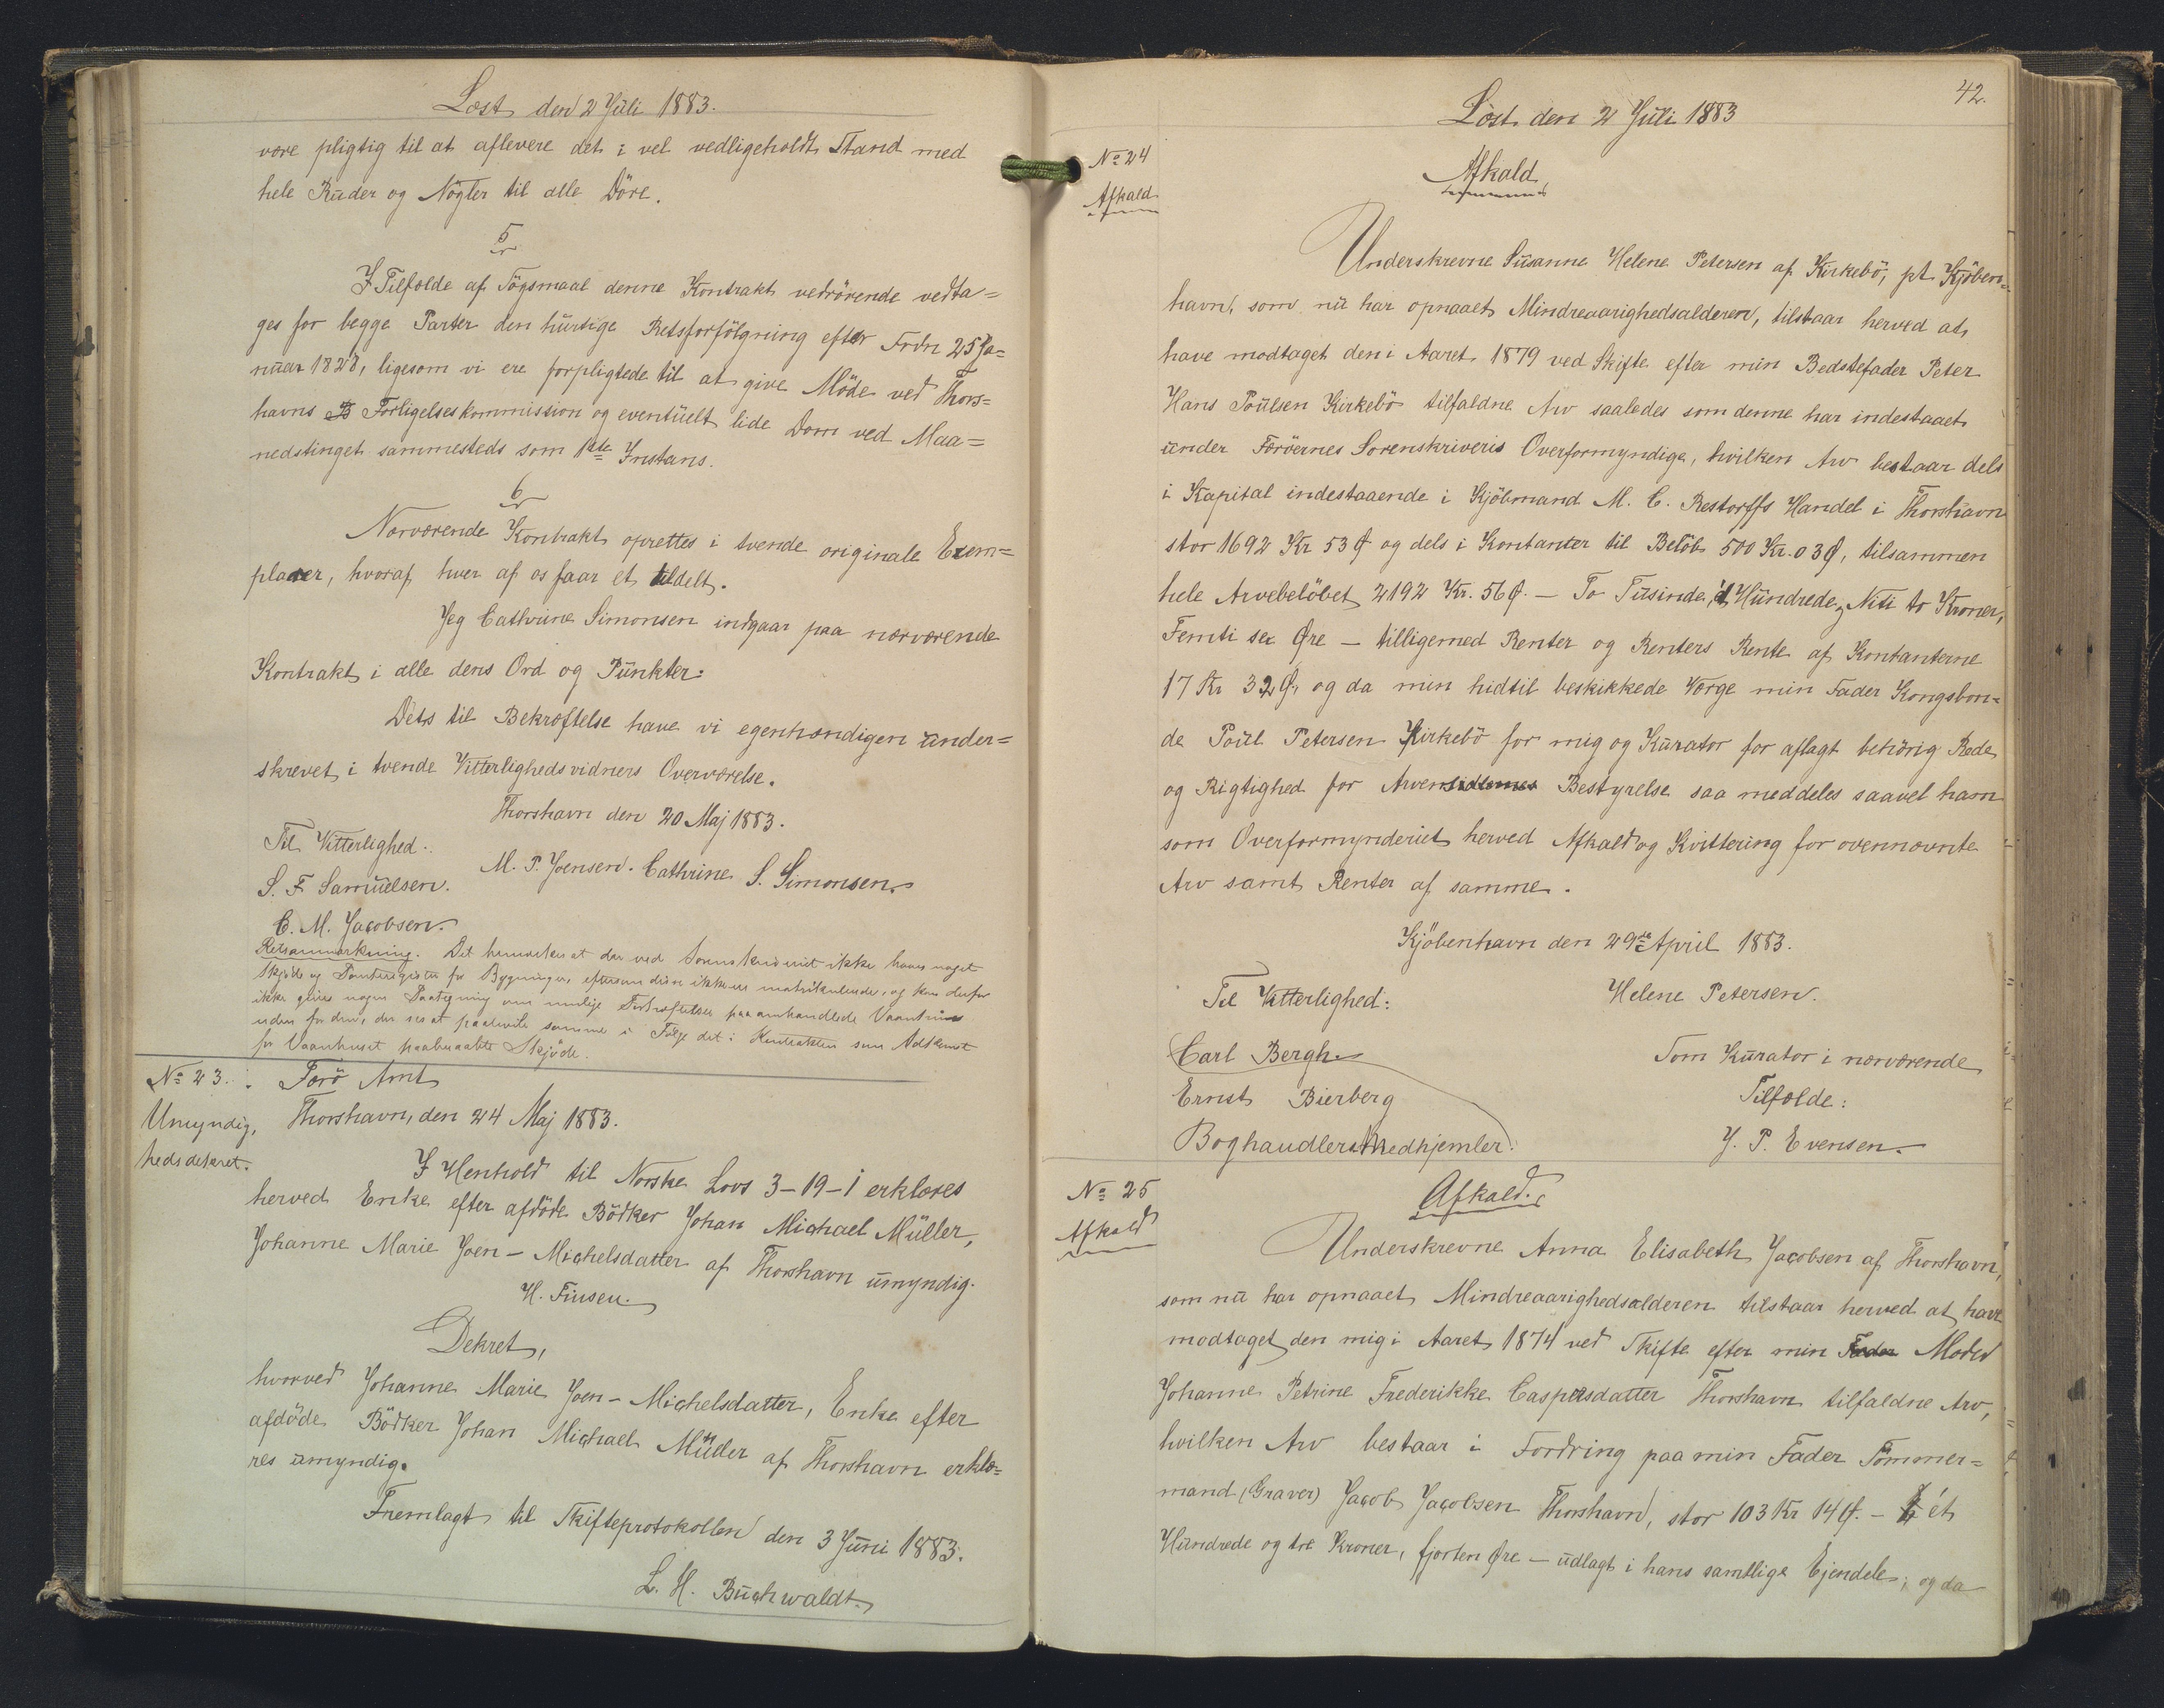 Læst den 2 Juli 1883.
være pligtig til at aflevere det i vel vedligeholdt Stand med
hele Ruder og Nøgler til alle Døre.
5
I Tilfælde af Søgsmaal denne Kontrakt vedrørende vedta=
ges for begge Parter den hurtige Retsforfølgning efter Frdn 25 Ja=
nuar 1828, ligesom vi ere forpligtede til at give Møde ved Thors=
havns Forligelseskommission og eventuelt lide Dom ved Maa=
nedstinget sammesteds som 1ste Instans.
6
Nærværende Kontrakt oprettes i tvende originale Exem=
plarer, hvoraf hver af os faar et tildelt.
Jeg Cathrine Simonsen indgaar paa nærværende
Kontrakt i alle dens Ord og Punkter.
Dets til Bekræftelse have vi egenhændigen under=
skrevet i tvende Vitterlighedsvidners Overværelse.
Thorshavn den 20 Maj 1883.
Til Vitterlighed.
M. P. Joensen. Cathrine S. Simonsen.
S. F. Samuelsen.
C. M. Jacobsen.
Retsanmærkning. Det bemærkes at der ved Sorenskriveriet ikke haves noget
Skjøde og Panteregister for Bygninger, eftersom disse ikke ere matrikulerede, og kan derfor
ikke gives nogen Paategning om mulige Forhæftelser paa omhandlede Vaanhuus
uden for den, der ses at paahvile samme i Følge det i Kontrakten som Adkomst
for Vaanhuset paaberaabte Skjøde.
No 23. Færø Amt
Umyndig, Thorshavn, den 24 Maj 1883.
hedsdekret.
I Henhold til Norske Lovs 3-19-1 erklæres
herved Enke efter afdøde Bødker Johan Michael Müller,
Johanne Marie Joen-Michelsdatter af Thorshavn umyndig.
H. Finsen.
Dekret,
hvorved Johanne Marie Joen-Michelsdatter, Enke efter
afdøde Bødker Johan Michael Müller af Thorshavn erklæ=
res umyndig.
Fremlagt til Skifteprotokollen den 3 Juni 1883.
L. H. Buchwaldt.
42.
Læst den 2 Juli 1883
No 24
Afkald
Afkald
Underskrevne Susanne Helene Petersen af Kirkebø, pt. Kjøben=
havn, som nu har opnaaet Mindreaarighedsalderen, tilstaar herved at
have modtaget den i Aaret 1879 ved Skifte efter min Bedstefader Peter
Hans Poulsen Kirkebø tilfaldne Arv saaledes som denne har indestaaet
under Færøernes Sorenskriveris Overformyndige, hvilken Arv bestaar dels
i Kapital indestaaende i Kjøbmand M. C. Restorffs Handel i Thorshavn
stor 1692 Kr 53 Ø og dels i Kontanter til Beløb 500 Kr. 03 Ø, tilsammen
hele Arvebeløbet 2192 Kr. 56 Ø. - To Tusinde, et Hundrede, Niti to Kroner,
Femti sex Øre - tilligemed Renter og Renters Rente af Kontanterne
17 Kr 32 Ø, og da min hidtil beskikkede Værge min Fader Kongsbon=
de Poul Petersen Kirkebø for mig og Kurator for aflagt behørig Rede
og Rigtighed for Arvens Bestyrelse saa meddeles saavel ham
som Overformynderiet herved Afkald og Kvittering for ovennævnte
Arv samt Renter af samme.
Kjøbenhavn den 29de April 1883.
Til Vitterlighed: Helene Petersen.
Carl Bergh. Som Kurator i nærværende
Ernst Bierberg Tilfælde:
Boghandlermedhjemler. J. P. Evensen.
No 25
Afkald
Afkald.
Underskrevne Anna Elisabeth Jacobsen af Thorshavn,
som nu har opnaaet Mindreaarighedsalderen tilstaar herved at have
modtaget den mig i Aaret 1874 ved Skifte efter min Fader Moder
Johanne Petrine Frederikke Caspersdatter Thorshavn tilfaldne Arv,
hvilken Arv bestaar i Fordring paa min Fader Tømmer=
mand (Graver) Jacob Jacobsen Thorshavn, stor 103 Kr 14 Ø. - ét
Hundrede og tre Kroner, fjorten Øre - udlagt i hans samtlige Ejendele; og da